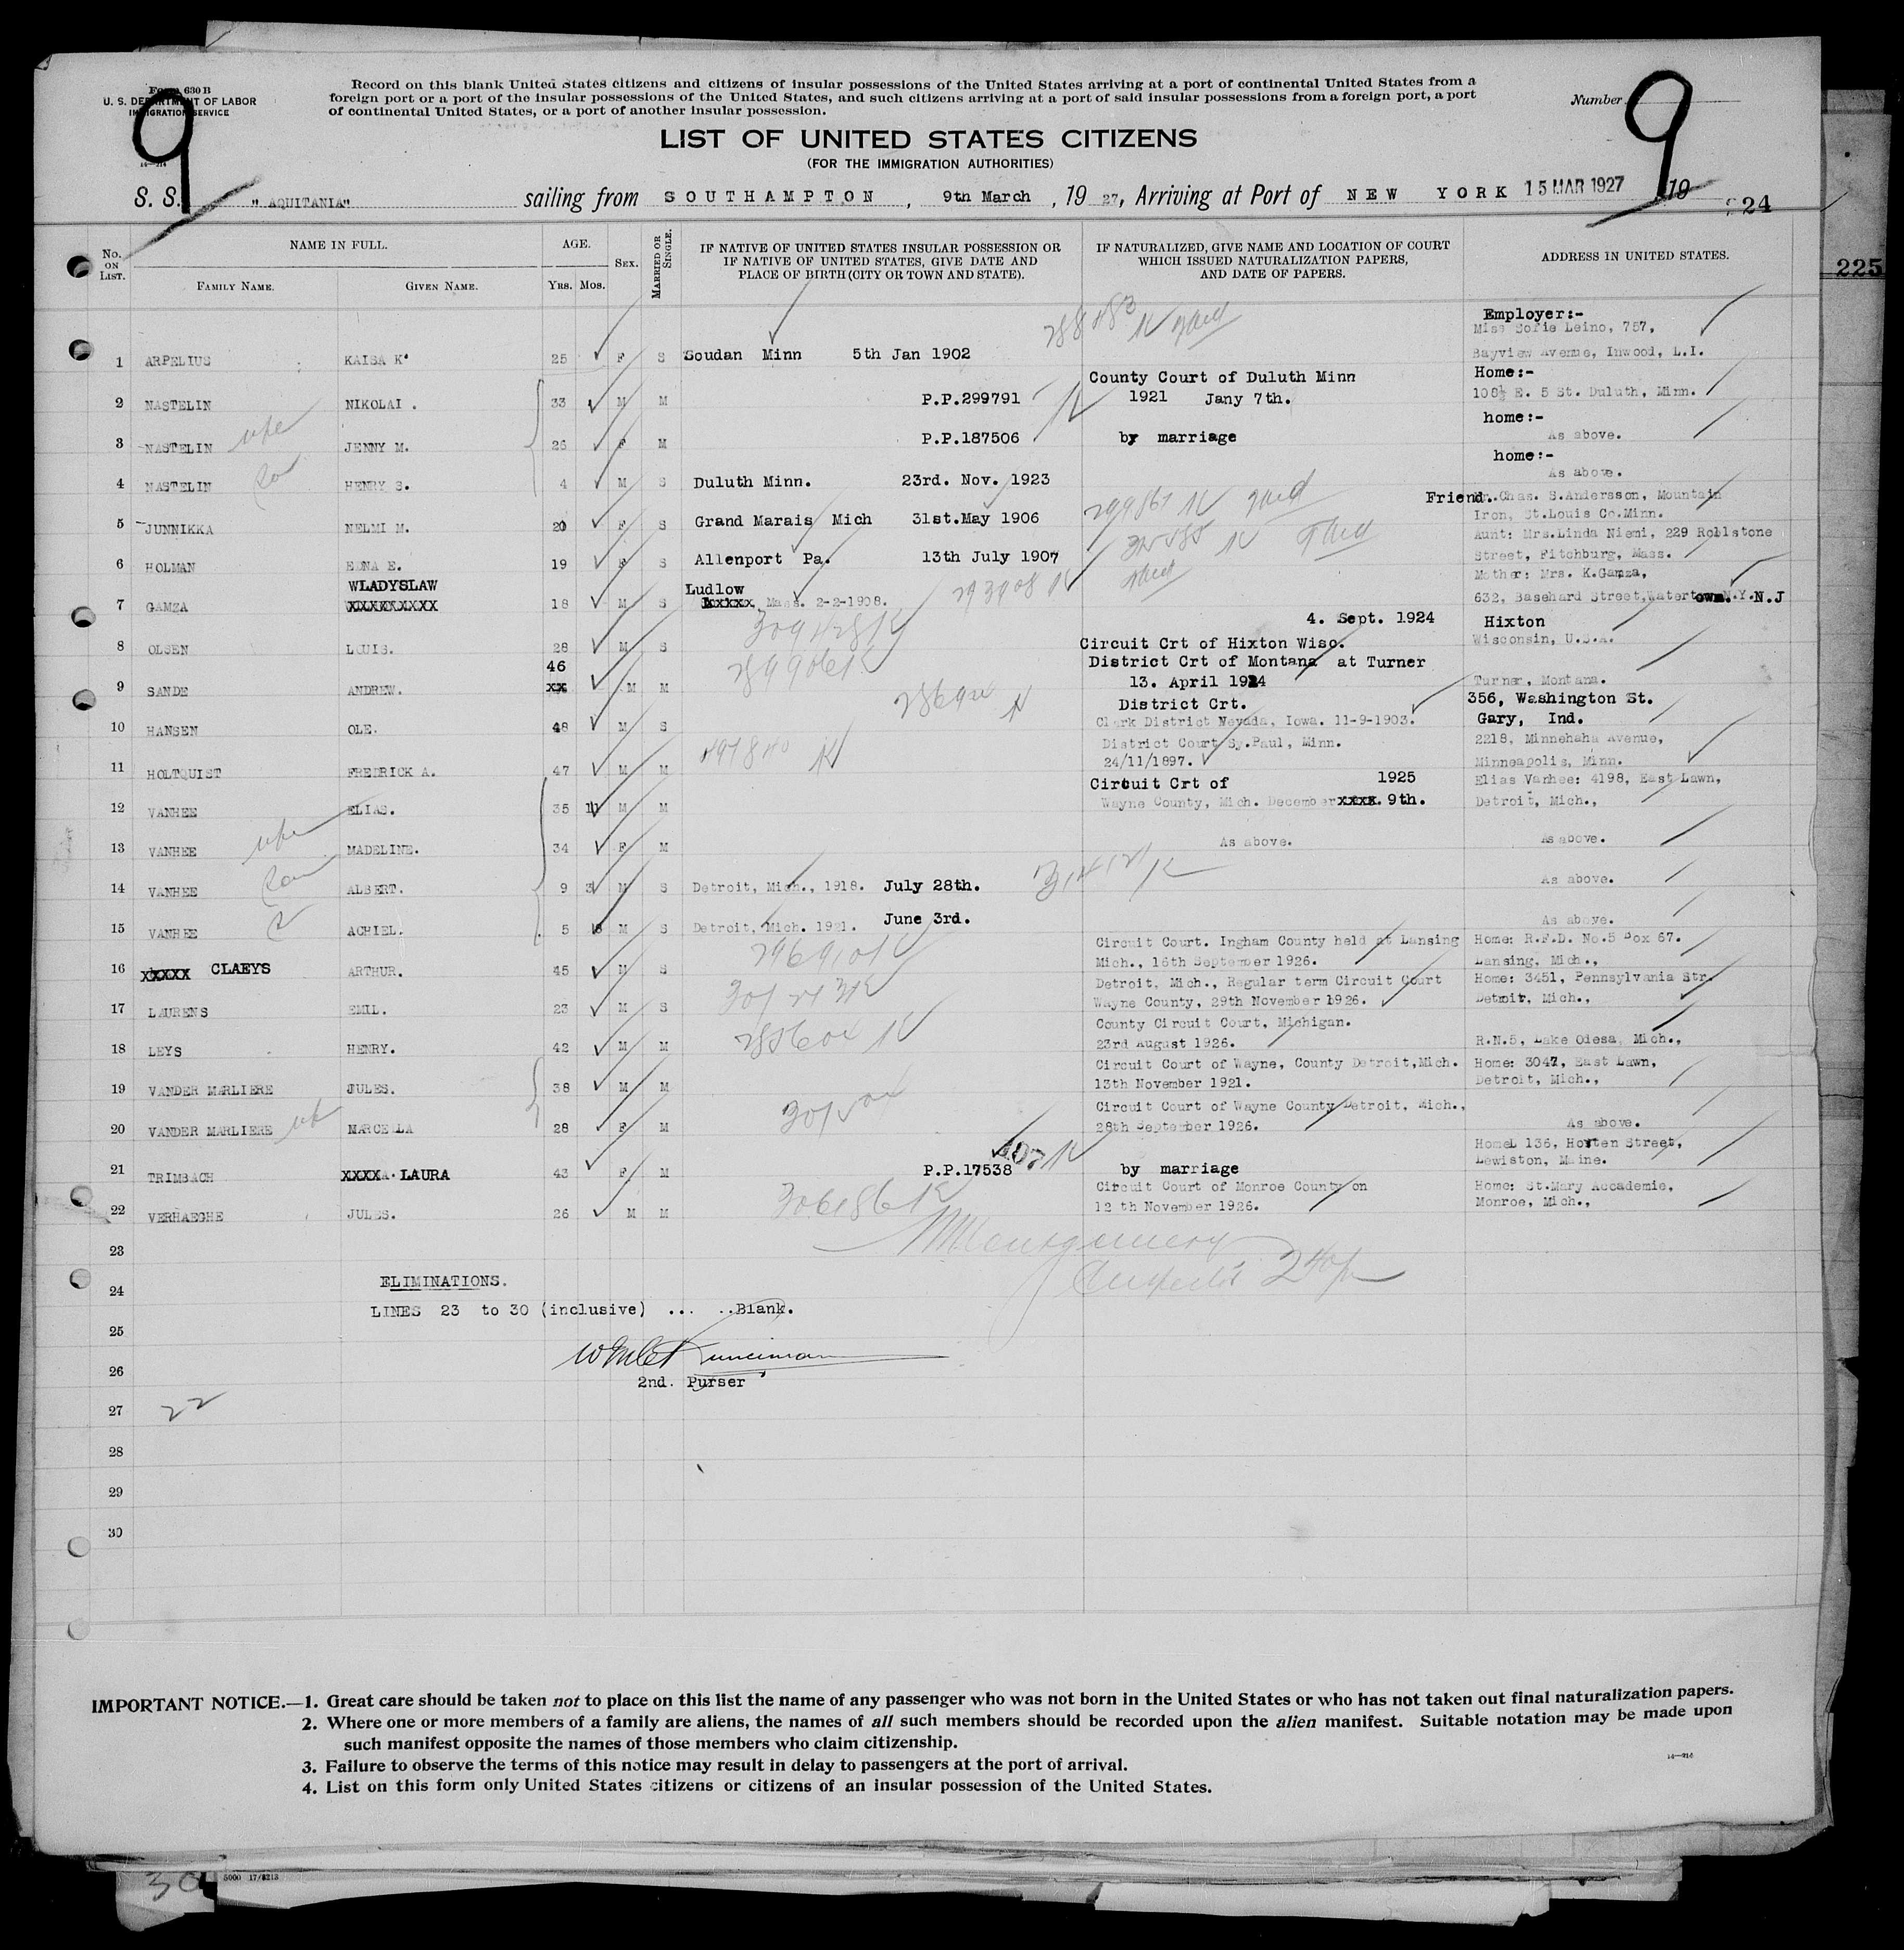 Form 630 B
U. S. DEPARTMENT OF LABOR
IMMIGRATION SERVICE
14—214
Record on this blank United States citizens and citizens of insular possessions of the United States arriving at a port of continental United States from a
foreign port or a port of the insular possessions of the United States, and such citizens arriving at a port of said insular possessions from a foreign port, a port
of continental United States, or a port of another insular possession.
Number
9
9
LIST OF UNITED STATES CITIZENS
(FOR THE IMMIGRATION AUTHORITIES)
S. S. "AQUITANIA" sailing from SOUTHAMPTON, 9th March, 19 27, Arriving at Port of NEW YORK 15 MAR 1927 19
24
225
No. ON LIST.
NAME IN FULL.
FAMILY NAME. GIVEN NAME.
AGE.
YRS. MOS.
SEX.
MARRIED OR SINGLE.
IF NATIVE OF UNITED STATES INSULAR POSSESSION OR
IF NATIVE OF UNITED STATES, GIVE DATE AND
PLACE OF BIRTH (CITY OR TOWN AND STATE).
IF NATURALIZED, GIVE NAME AND LOCATION OF COURT
WHICH ISSUED NATURALIZATION PAPERS,
AND DATE OF PAPERS.
ADDRESS IN UNITED STATES.
Employer:-
Miss Sofie Leino, 757,
1 ARPELIUS KAISA K. 25 F S Soudan Minn 5th Jan 1902 Bayview Avenue, Inwood, L.I.
County Court of Duluth Minn Home:-
2 NASTELIN NIKOLAI . 33 M M P.P.299791 1921 Jany 7th. 108½ E. 5 St. Duluth, Minn.
home:-
3 NASTELIN wife JENNY M. 26 F M P.P.187506 by marriage As above.
home:-
4 NASTELIN son HENRY S. 4 M S Duluth Minn. 23rd. Nov. 1923 As above.
Friend. Chas. S.Andersson, Mountain
5 JUNNIKKA NELMI M. 20 F S Grand Marais Mich 31st.May 1906 Iron, St.Louis Co.Minn.
Aunt: Mrs.Linda Niemi, 229 Rollstone
6 HOLMAN EDNA E. 19 F S Allenport Pa. 13th July 1907 Street, Fitchburg, Mass.
WLADYSLAW Ludlow Mother: Mrs. K.Gamza,
7 GAMZA XXXXXXXXXX 18 M S xxxxx, Mass. 2-2-1908. 632, Basehard Street,Watertown. N.Y. N.J
4. Sept. 1924 Hixton
8 OLSEN LOUIS. 28 M S Circuit Crt of Hixton Wisc. Wisconsin, U.S.A.
46 District Crt of Montana at Turner
9 SANDE ANDREW. xx M M 13. April 1924 Turner, Montana.
District Crt. 356, Washington St.
10 HANSEN OLE. 48 M S Clark District Nevada, Iowa. 11-9-1903. Gary, Ind.
District Court Sy.Paul, Minn. 2218, Minnehaha Avenue,
11 HOLTQUIST FREDRICK A. 47 M M 24/11/1897. Minneapolis, Minn.
Circuit Crt of 1925 Elias Vanhee: 4198, East Lawn,
12 VANHEE ELIAS. 35 11 M M Wayne County, Mich. December xxxx. 9th. Detroit, Mich.,
13 VANHEE wife MADELINE. 34 F M As above. As above.
14 VANHEE son ALBERT. 9 3 M S Detroit, Mich., 1918. July 28th. As above.
15 VANHEE ACHIEL. 5 M S Detroit, Mich. 1921. June 3rd. As above.
Circuit Court. Ingham County held at Lansing Home: R.F.D. No.5 Box 67.
16 XXXXX CLAEYS ARTHUR. 45 M S Mich., 16th September 1926. Lansing, Mich.,
Detroit, Mich., Regular term Circuit Court Home: 3451, Pennsylvania Str.
17 LAURENS EMIL. 23 M S Wayne County, 29th November 1926. Detroit, Mich.,
County Circuit Court, Michigan.
18 LEYS HENRY. 42 M M 23rd August 1926. R.N.5, Lake Odesa, Mich.,
Circuit Court of Wayne, County Detroit,Mich. Home: 3047, East Lawn,
19 VANDER MARLIERE JULES. 38 M M 13th November 1921. Detroit, Mich.,
Circuit Court of Wayne County Detroit, Mich.,
20 VANDER MARLIERE MARCELLA 28 F M 28th September 1926. As above.
Home: 136, Horten Street,
21 TRIMBACH XXXXA. LAURA 43 F M P.P.17538 by marriage Lewiston, Maine.
Circuit Court of Monroe County on Home: St.Mary Accademie,
22 VERHAEGHE JULES. 26 M M 306186 12 th November 1926. Monroe, Mich.,
23
24 ELIMINATIONS.
LINES 23 to 30 (inclusive) ... ..Blank.
25
26
2nd. Purser
27 22
28
29
30
IMPORTANT NOTICE.—1. Great care should be taken not to place on this list the name of any passenger who was not born in the United States or who has not taken out final naturalization papers.
2. Where one or more members of a family are aliens, the names of all such members should be recorded upon the alien manifest. Suitable notation may be made upon
such manifest opposite the names of those members who claim citizenship.
3. Failure to observe the terms of this notice may result in delay to passengers at the port of arrival.
4. List on this form only United States citizens or citizens of an insular possession of the United States.
14—214
30
5000 17/8213